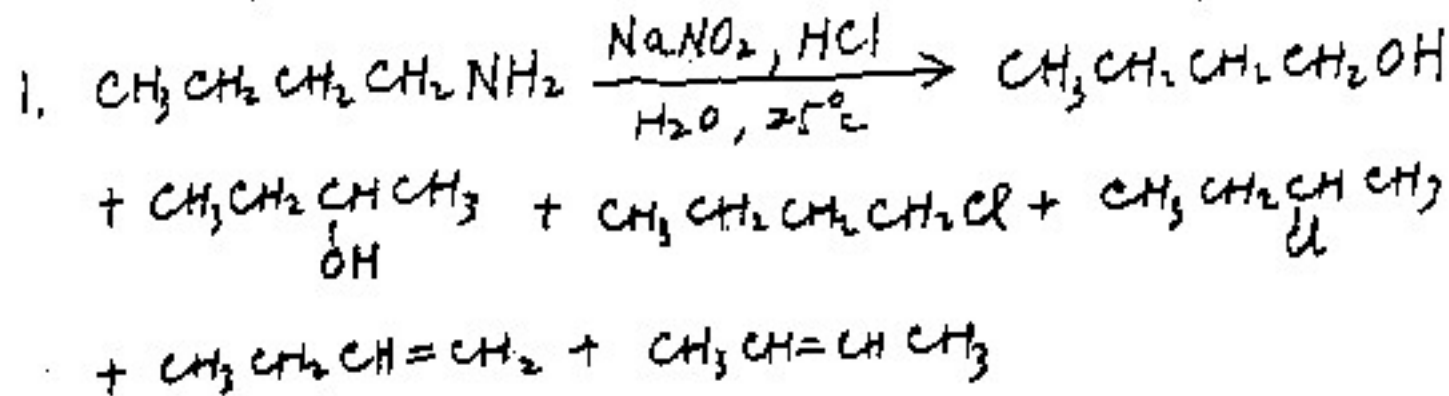 1. CH₃CH₂CH₂CH₂NH₂ NaNO₂, HCl → CH₃CH₂CH₂CH₂OH
H₂O, 25°C
+ CH₃CH₂CHCH₃ + CH₃CH₂CH₂CH₂Cl + CH₃CH₂CHCH₃
OH Cl
+ CH₃CH₂CH=CH₂ + CH₃CH=CHCH₃